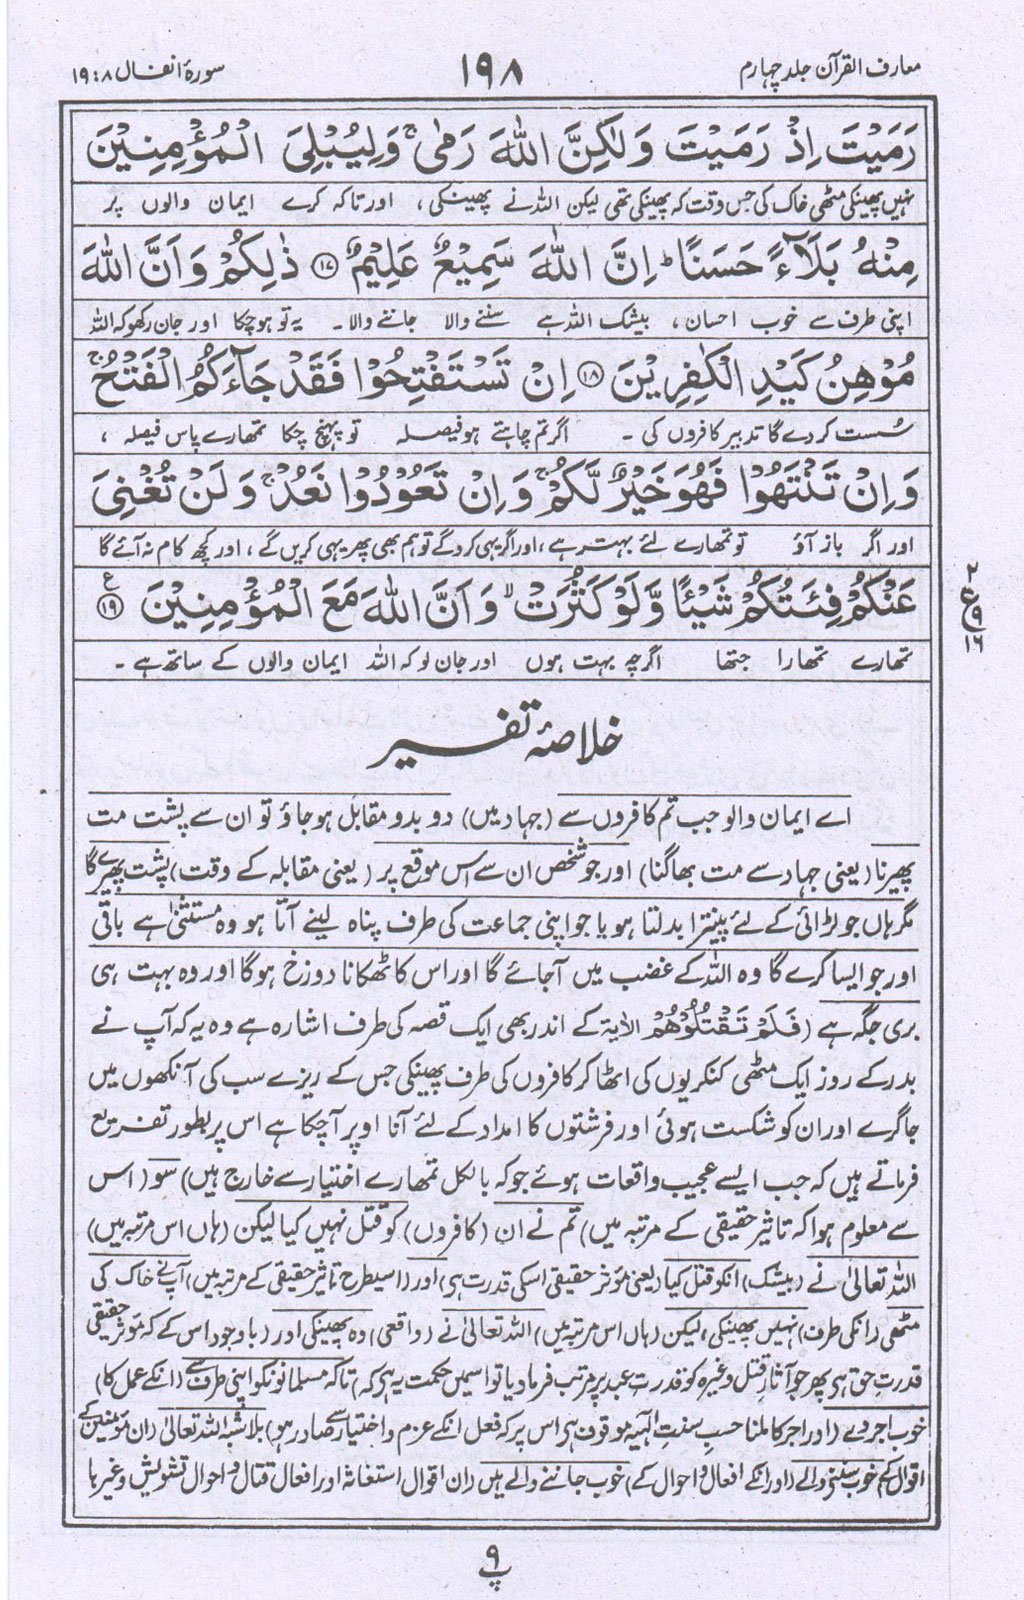 معارف القرآن جلد چہارم
۱۹۸
سورۂ انفال ۸ : ۱۹
رَمَيْتَ اِذْ رَمَيْتَ وَلٰكِنَّ اللّٰهَ رَمٰى ۚ وَلِيُبْلِىَ الْمُؤْمِنِيْنَ
نہیں پھینکی مٹھی خاک کی جس وقت کہ پھینکی تھی لیکن اللہ نے پھینکی ، اور تاکہ کرے ایمان والوں پر
مِنْهُ بَلَآءً حَسَنًا ؕ اِنَّ اللّٰهَ سَمِيْعٌ عَلِيْمٌ ﴿۱۷﴾ ذٰلِكُمْ وَاَنَّ اللّٰهَ
اپنی طرف سے خوب احسان ، بیشک اللہ ہے سننے والا جاننے والا ۔ یہ تو ہوچکا اور جان رکھو کہ اللہ
مُوْهِنُ كَيْدِ الْكٰفِرِيْنَ ﴿۱۸﴾ اِنْ تَسْتَفْتِحُوْا فَقَدْ جَآءَكُمُ الْفَتْحُ ۚ
سُست کردے گا تدبیر کافروں کی ۔ اگر تم چاہتے ہو فیصلہ تو پہنچ چکا تمھارے پاس فیصلہ ،
وَاِنْ تَنْتَهُوْا فَهُوَ خَيْرٌ لَّكُمْ ۚ وَاِنْ تَعُوْدُوْا نَعُدْ ۚ وَلَنْ تُغْنِىَ
اور اگر باز آؤ تو تمھارے لئے بہتر ہے ، اور اگر یہی کروگے تو ہم بھی پھر یہی کریں گے ، اور کچھ کام نہ آئے گا
عَنْكُمْ فِئَتُكُمْ شَيْـًٔا وَّلَوْ كَثُرَتْ ۙ وَاَنَّ اللّٰهَ مَعَ الْمُؤْمِنِيْنَ ﴿۱۹﴾ ع
۲
ع ۹
۱۶
تمھارے تمھارا جتھا اگرچہ بہت ہوں اور جان لو کہ اللہ ایمان والوں کے ساتھ ہے ۔
خلاصۂ تفسیر
اے ایمان والو جب تم کافروں سے (جہاد میں) دو بدو مقابل ہوجاؤ تو ان سے پشت مت
پھیرنا (یعنی جہاد سے مت بھاگنا) اور جو شخص ان سے اس موقع پر (یعنی مقابلہ کے وقت) پشت پھیرے گا
مگر ہاں جو لڑائی کے لئے پینترا بدلتا ہو یا جو اپنی جماعت کی طرف پناہ لینے آتا ہو وہ مستثنیٰ ہے باقی
اور جو ایسا کرے گا وہ اللہ کے غضب میں آجائے گا اور اس کا ٹھکانا دوزخ ہوگا اور وہ بہت ہی
بری جگہ ہے (فَلَمْ تَقْتُلُوْهُمْ الاٰیۃ کے اندر بھی ایک قصہ کی طرف اشارہ ہے وہ یہ کہ آپ نے
بدر کے روز ایک مٹھی کنکریوں کی اٹھا کر کافروں کی طرف پھینکی جس کے ریزے سب کی آنکھوں میں
جا گرے اور ان کو شکست ہوئی اور فرشتوں کا امداد کے لئے آنا اوپر آچکا ہے اس پر بطور تفریع
فرماتے ہیں کہ جب ایسے عجیب واقعات ہوئے جو کہ بالکل تمھارے اختیار سے خارج ہیں) سو (اس
سے معلوم ہوا کہ تاثیر حقیقی کے مرتبہ میں) تم نے ان (کافروں) کو قتل نہیں کیا لیکن (ہاں اس مرتبہ میں)
اللہ تعالیٰ نے (بیشک) انکو قتل کیا (یعنی مؤثر حقیقی اسکی قدرت ہی) اور (اسیطرح تاثیر حقیقی کے مرتبہ میں) آپنے خاک کی
مٹھی (انکی طرف) نہیں پھینکی ، لیکن (ہاں اس مرتبہ میں) اللہ تعالیٰ نے (واقعی) وہ پھینکی اور (باوجود اس کے کہ مؤثر حقیقی
قدرت حق ہی پھر جو آثار قتل وغیرہ کو قدرت عبد پر مرتب فرمادیا تو اسمیں حکمت یہ ہی کہ) تاکہ مسلمانونکو اپنی طرف سے (انکے عمل کا)
خوب اجر دے (اور اجر کا ملنا حسبِ سنتِ الٰہیہ موقوف ہی اس پر کہ فعل انکے عزم و اختیار سے صادر ہو) بلاشبہ اللہ تعالیٰ (ان مؤمنین کے
اقوال کے) خوب سننے والے (اور انکے افعال و احوال کے) خوب جاننے والے ہیں (ان اقوال استغاثہ اور افعال قتال و احوال تشویش وغیرہا
۹
پ